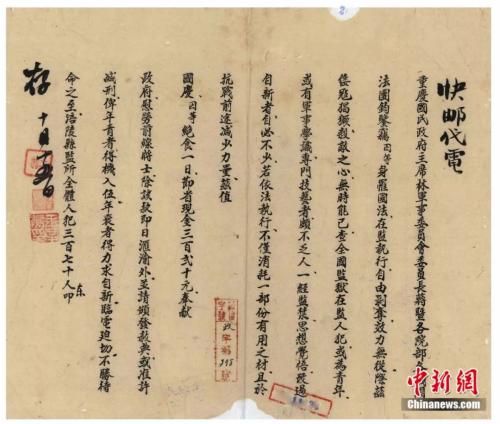 快郵代電
重慶國民政府主席林軍事委員會委員長蔣暨各院部
法團鈞鑒竊因等身罹國法在監執行自由剝奪效力無從際茲
倭寇猖獗殺敵之心無時能已查全國監獄在監人犯或為青年
或有軍事學識專門技藝者頗不乏人一經監禁思想覺悟改過
自新者自必不少若依法執行不僅消耗一部份有用之材且於
抗戰前途減少力量茲值
國慶因等絕食一日節省現金三百弍十元奉獻
政府慰勞前線將士除該款即日滙渝外並請頒發赦典或准許
減刑俾年青者得機入伍年衰者得力求自新臨電迫切不勝待
命之至涪陵縣監所全體人犯三百七十人叩东
存
十月
政字第
2
中新网
Chinanews.com